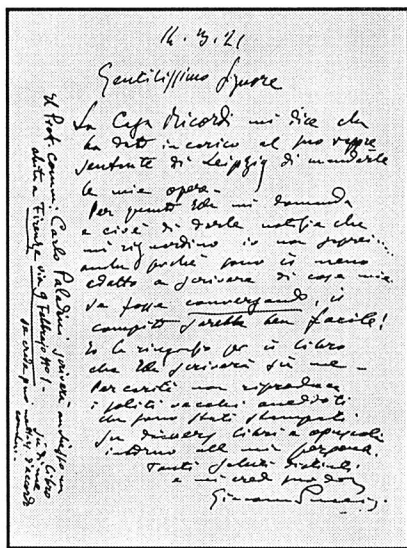 14.3.21
Gentilissimo Signore
La Casa Ricordi mi dice che
ha dato incarico al suo rappre
sentante di Leipzig di mandarle
le mie opere -
Per quanto Ella mi domanda
e cioè di darle notizie che
mi riguardino io non saprei...
anche perché sono io meno
adatto a scrivere di cose mie
se fosse conversando, il
compito sarebbe ben facile!
Io la ringrazio per il libro
che Ella scriverà su me -
Per carità non riproduca
i soliti vecchi aneddoti
che sono stati stampati
su diversi libri e opuscoli
intorno alla mia persona.
Tanti saluti distinti
e mi creda suo dev
Giacomo Puccini
Il Prof. Comm. Carlo Paladini scriverà anch'esso un libro
abita a Firenze via 9 Febbraio No 1 - su di me